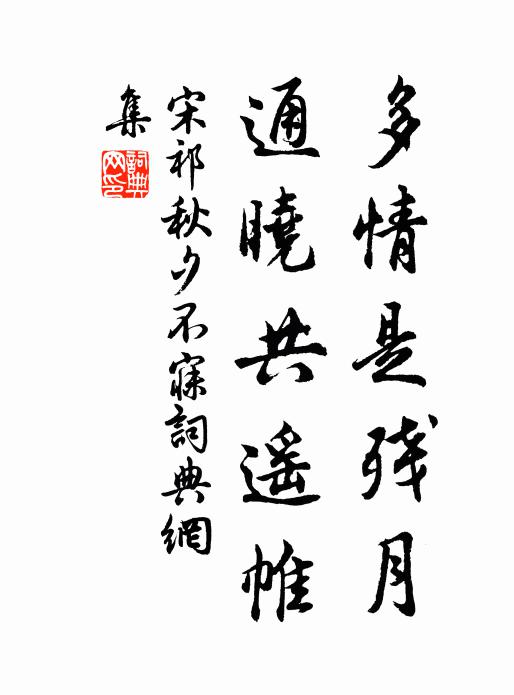 多情是残月
通曉共遥帷
宋祁秋夕不寐詞典網
集
詞典
网印